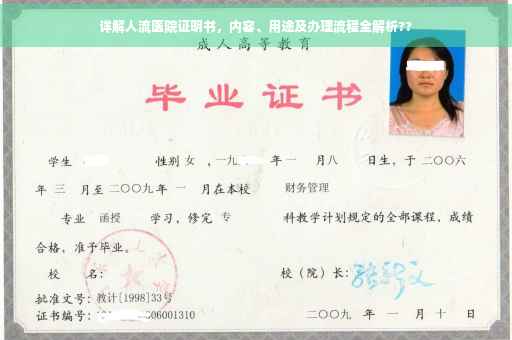 详解人流医院证明书，内容、用途及办理流程全解析??
成人高等教育
毕业证书
学生 性别 女 ，一九 年 一 月八 日生，于二〇〇六
年 三 月至二〇〇九年 一 月在本校 财务管理
专业 函授 学习，修完 专 科教学计划规定的全部课程，成绩
合格，准予毕业。
校 名： 校（院）长：
批准文号：教计[1998]33号
证书编号： 06001310 二〇〇九 年 一 月 十 日